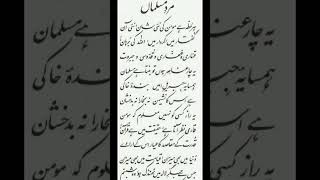 مرد مسلماں
ہر لحظہ ہے مومن کی نئی شان نئی آن
گفتار میں کردار میں اللہ کی برہان
قہاری و غفاری و قدوسی و جبروت
یہ چار عناصر ہوں تو بنتا ہے مسلمان
ہمسایہ جبریل امیں بندۂ خاکی
ہے اس کا نشیمن نہ بخارا نہ بدخشان
یہ راز کسی کو نہیں معلوم کہ مومن
قاری نظر آتا ہے حقیقت میں ہے قرآن
قدرت کے مقاصد کا عیار اس کے ارادے
دنیا میں بھی میزان قیامت میں بھی میزان
جس سے جگر لالہ میں ٹھنڈک ہو وہ شبنم
یہ چار عنا
ہمسایہ جبر
ہے اس
یہ راز کسی
بندۂ خاکی
بخارا نہ بدخشان
کہ مومن